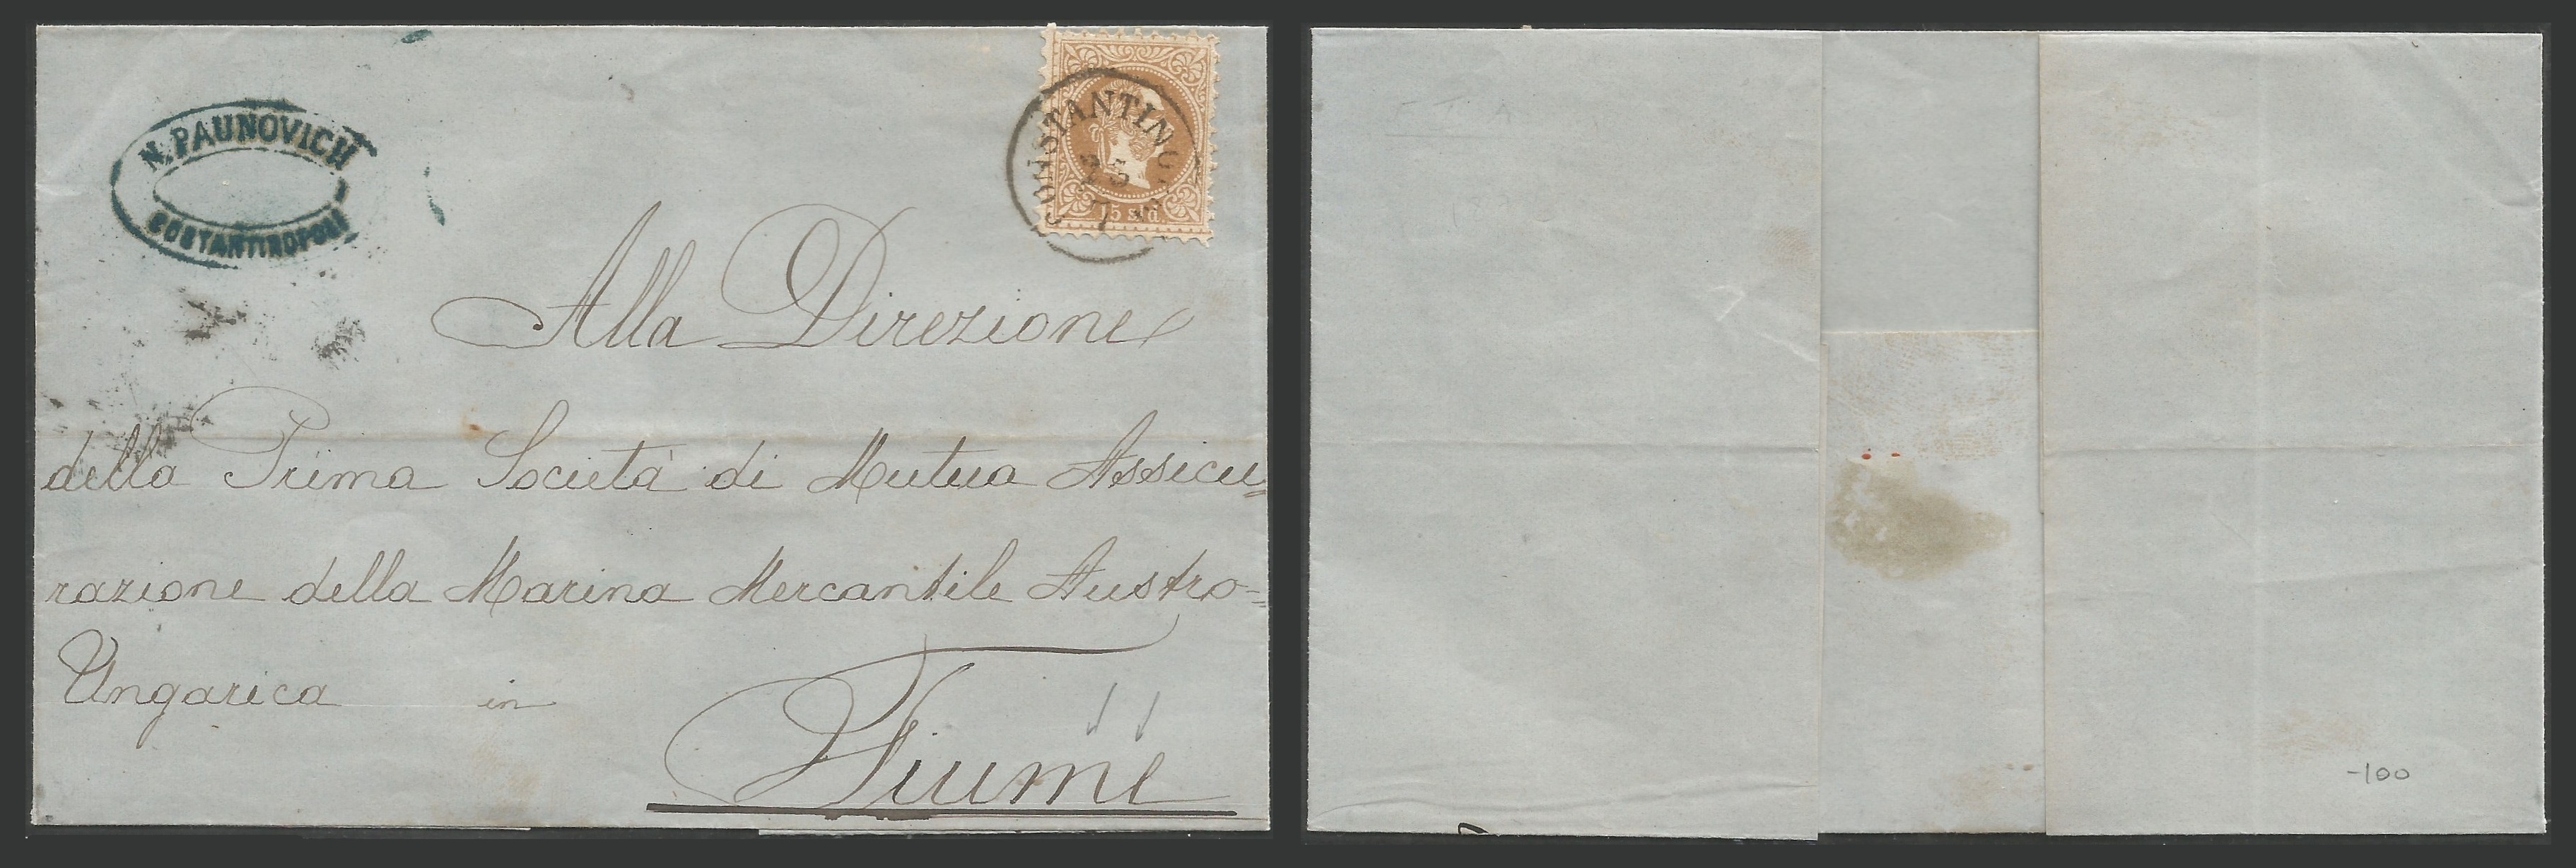 N. PAUNOVICH
COSTANTINOPOLI
CONSTANTINO
25
15 sld.
Alla Direzione
della Prima Società di Mutua Assicu=
razione della Marina Mercantile Austro=
Ungarica in
Fiume
-100